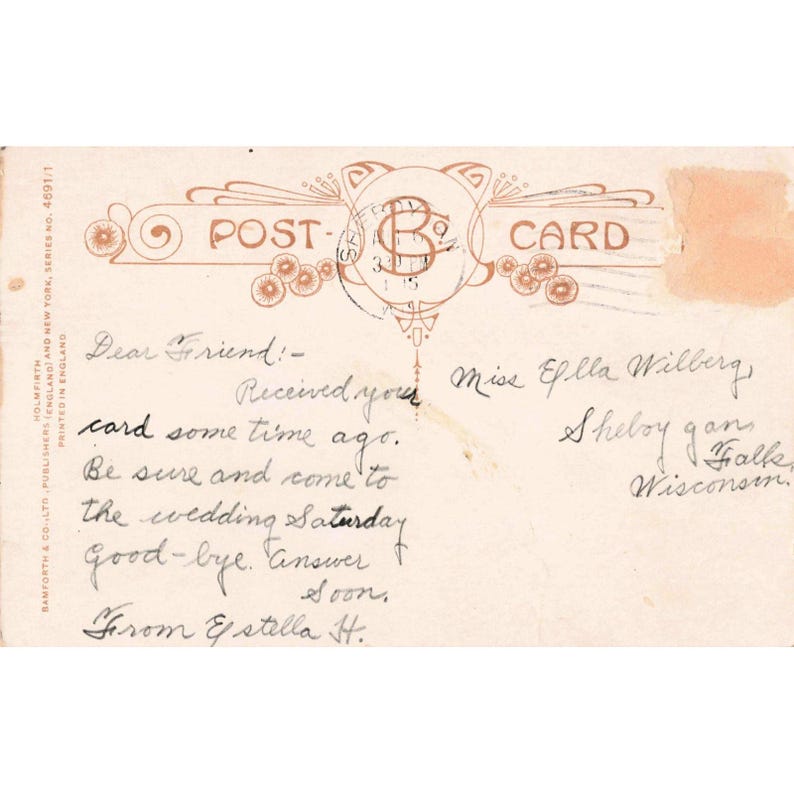 HOLMFIRTH
BAMFORTH & CO., LTD., PUBLISHERS (ENGLAND) AND NEW YORK, SERIES NO. 4691/1
PRINTED IN ENGLAND
POST-CARD
BCo
SHEBOYGAN
Dear Friend:-
Received your
card some time ago.
Be sure and come to
the wedding Saturday
Good-bye. Answer
Soon.
From Estella H.
Miss Ella Wilberg,
Sheboygan
Falls,
Wisconsin.